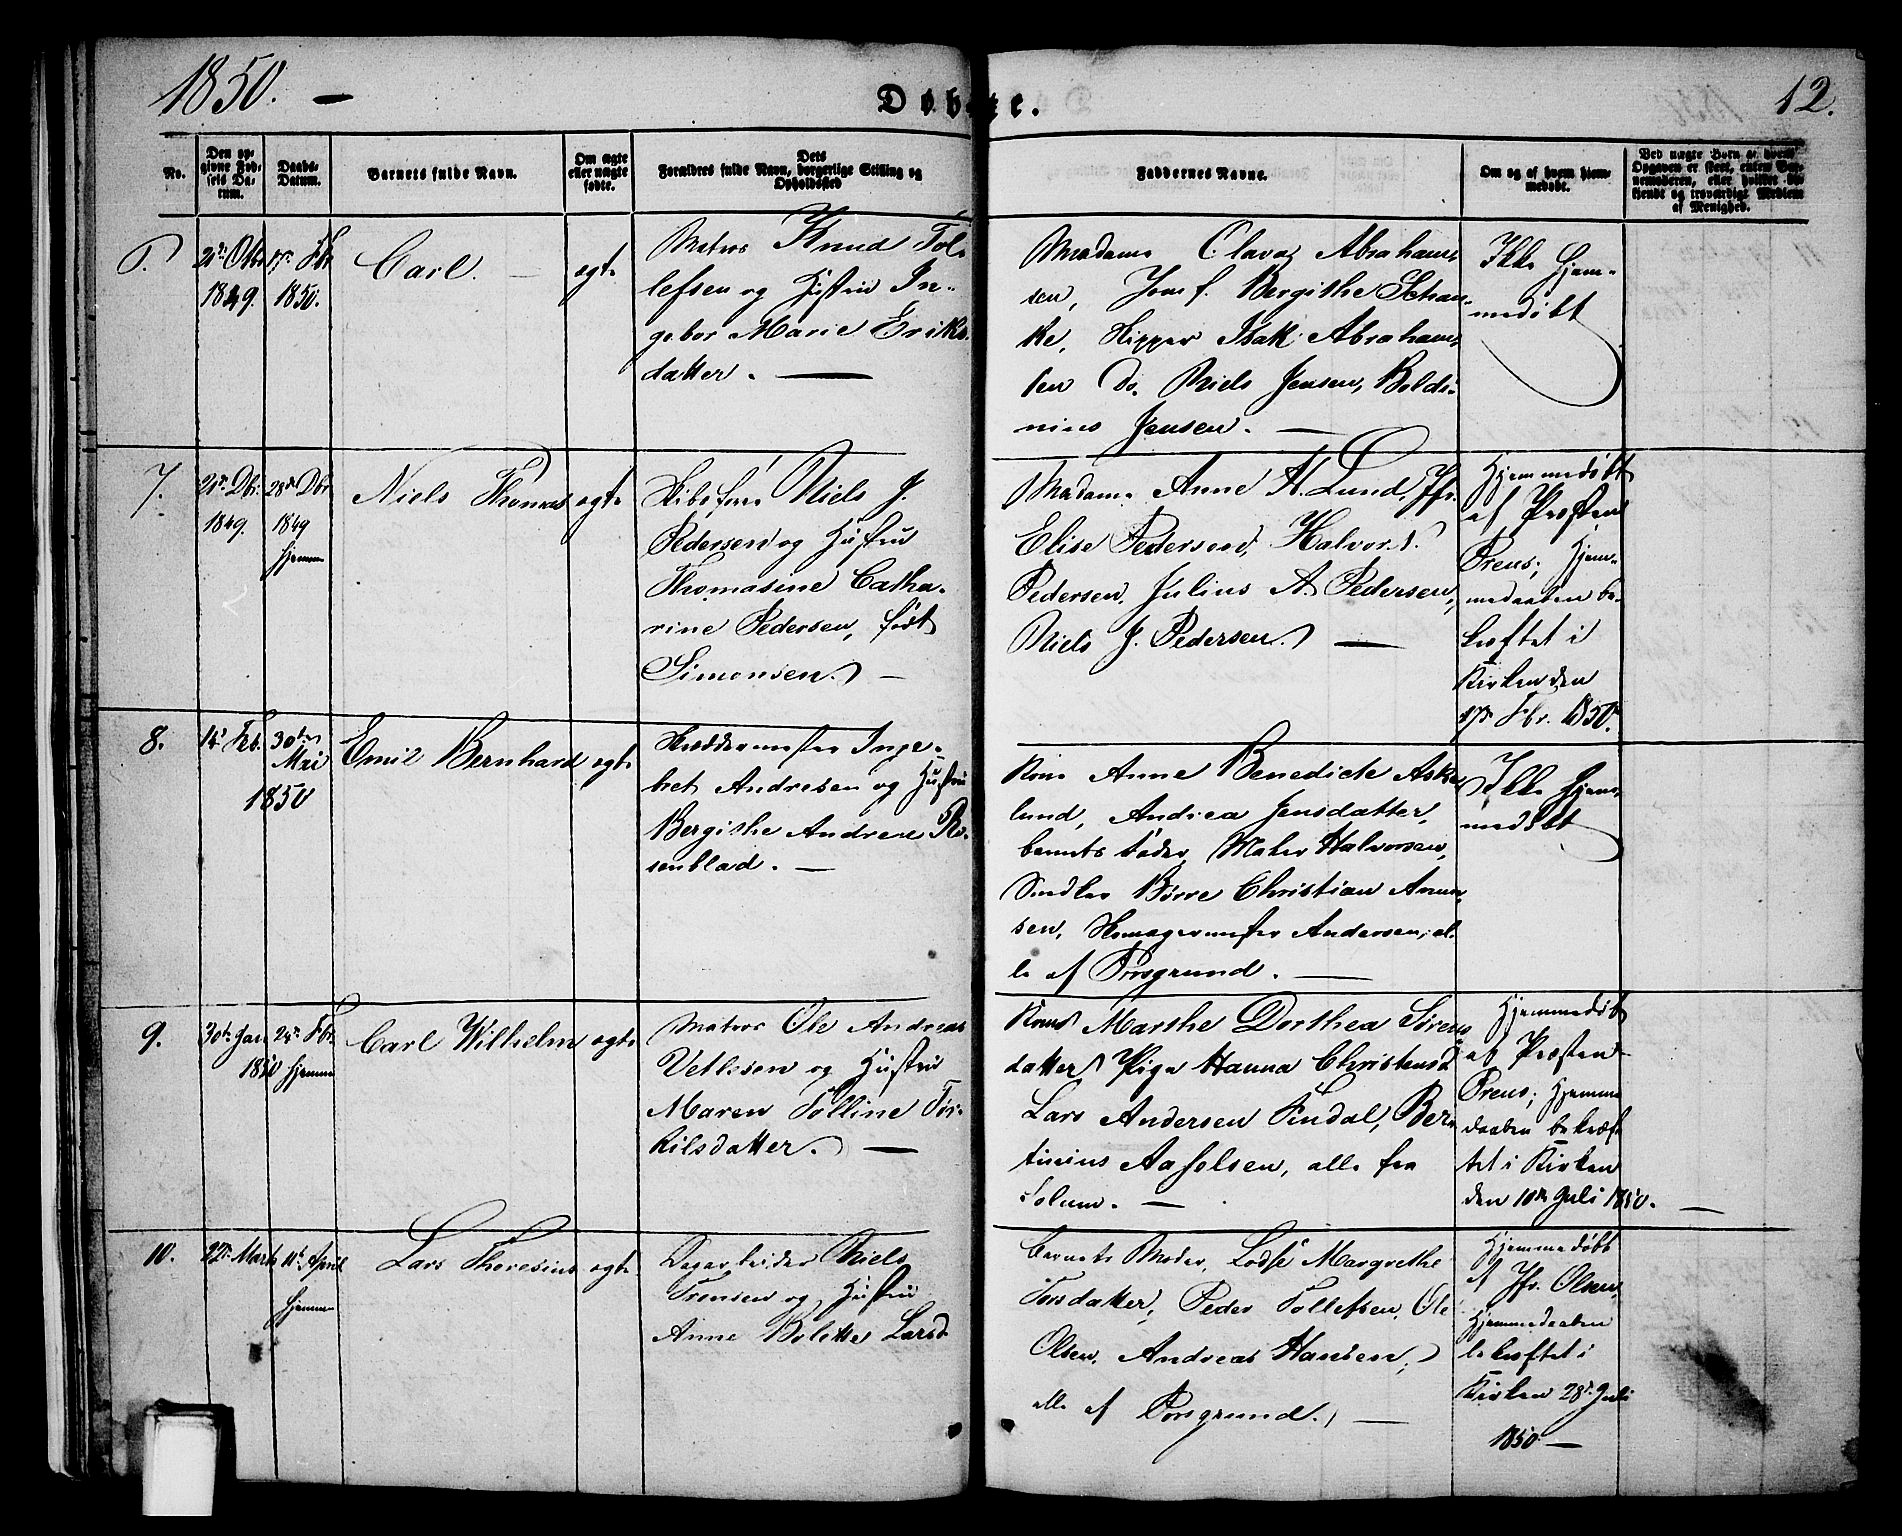 1850. —
Døbte.
12.
No.
Den opgivne Fødsels Datum.
Daabs-Datum.
Barnets fulde Navn.
Om ægte eller uægte fødte.
Dets Forældres fulde Navn, borgerlige Stilling og Opholdssted
Faddernes Navne.
Om og af hvem hjemmedøbt.
Ved uægte Børn af hvem Opgaven er skeet, enten Bornemoderen, eller hvilket bekjendt og troværdigt Medlem af Menighed.
6.
1849.
17de Fbr.
1850.
Carl. —
ægte
Matros Knud Tol-
lefsen og Hustru In-
gebor Marie Eriks-
datter. —
Madame Olava Abraham-
sen, Jomf. Bergithe Schan-
ke, Skipper Isak Abraham-
sen do. Niels Jensen, Boldi-
nius Jensen. —
Ikke Hjem-
medøbt
7.
Dbr.
1849.
28de Dbr
1849
hjemme
Niels Thomas
ægte
Skibsfører Niels J.
Pedersen og Hustru
Thomasine Catha-
rine Pedersen, født
Simonsen. —
Madame Anne H. Lund, Jfr.
Elise Pedersen, Halvor
Pedersen, Julius A. Pedersen,
Niels J. Pedersen. —
Hjemmedøbt
af Præsten
Preus; Hjem-
medaaben be-
kræftet i
Kirken den
17de Fbr. 1850.
8.
14de Feb.
30te
Mai
1850
Emil Bernhard
ægte
Skræddermester Inge-
bret Andresen og Hustru
Bergithe Andrea Ro-
senblad. —
Kone Anne Benedicte Aske-
lund, Andrea Jensdatter,
barnets Fader, Maler Halvorsen,
Snedker Børre Christian Amun-
sen, Skomagermester Andersen, al-
le af Porsgrund. —
Ikke Hjem-
medøbt
9.
30te Jan
1850
24de Fbr.
hjemme
Carl Wilhelm
ægte
Matros Ole Andreas
Vetlesen og Hustru
Maren Tolline Tor-
kilsdatter. —
Kone Marthe Dorthea Sørens-
datter, Pige Hanna Christensd.
Lars Andersen Findal, Ber-
tinius Aaselsen, alle fra
Solum. —
Hjemmedøbt
af Præsten
Preus; Hjemme
daaben bekræf-
tet i Kirken
den 10de Juli 1850. —
10.
22de Marts
11te April
hjemme
Lars Thoresius
ægte
Dagarbeider Niels
Tronsen og Hustru
Anne Bolette Larsd.
Barnets Moder, Lodse Margrethe
Torsdatter, Peder Tollefsen, Ole
Olsen, Andreas Hansen,
alle af Porsgrund. —
Hjemmedøbt
af Jfr. Olsen,
Hjemmedaaben
bekræftet i
Kirken 28de Juli
1850 —